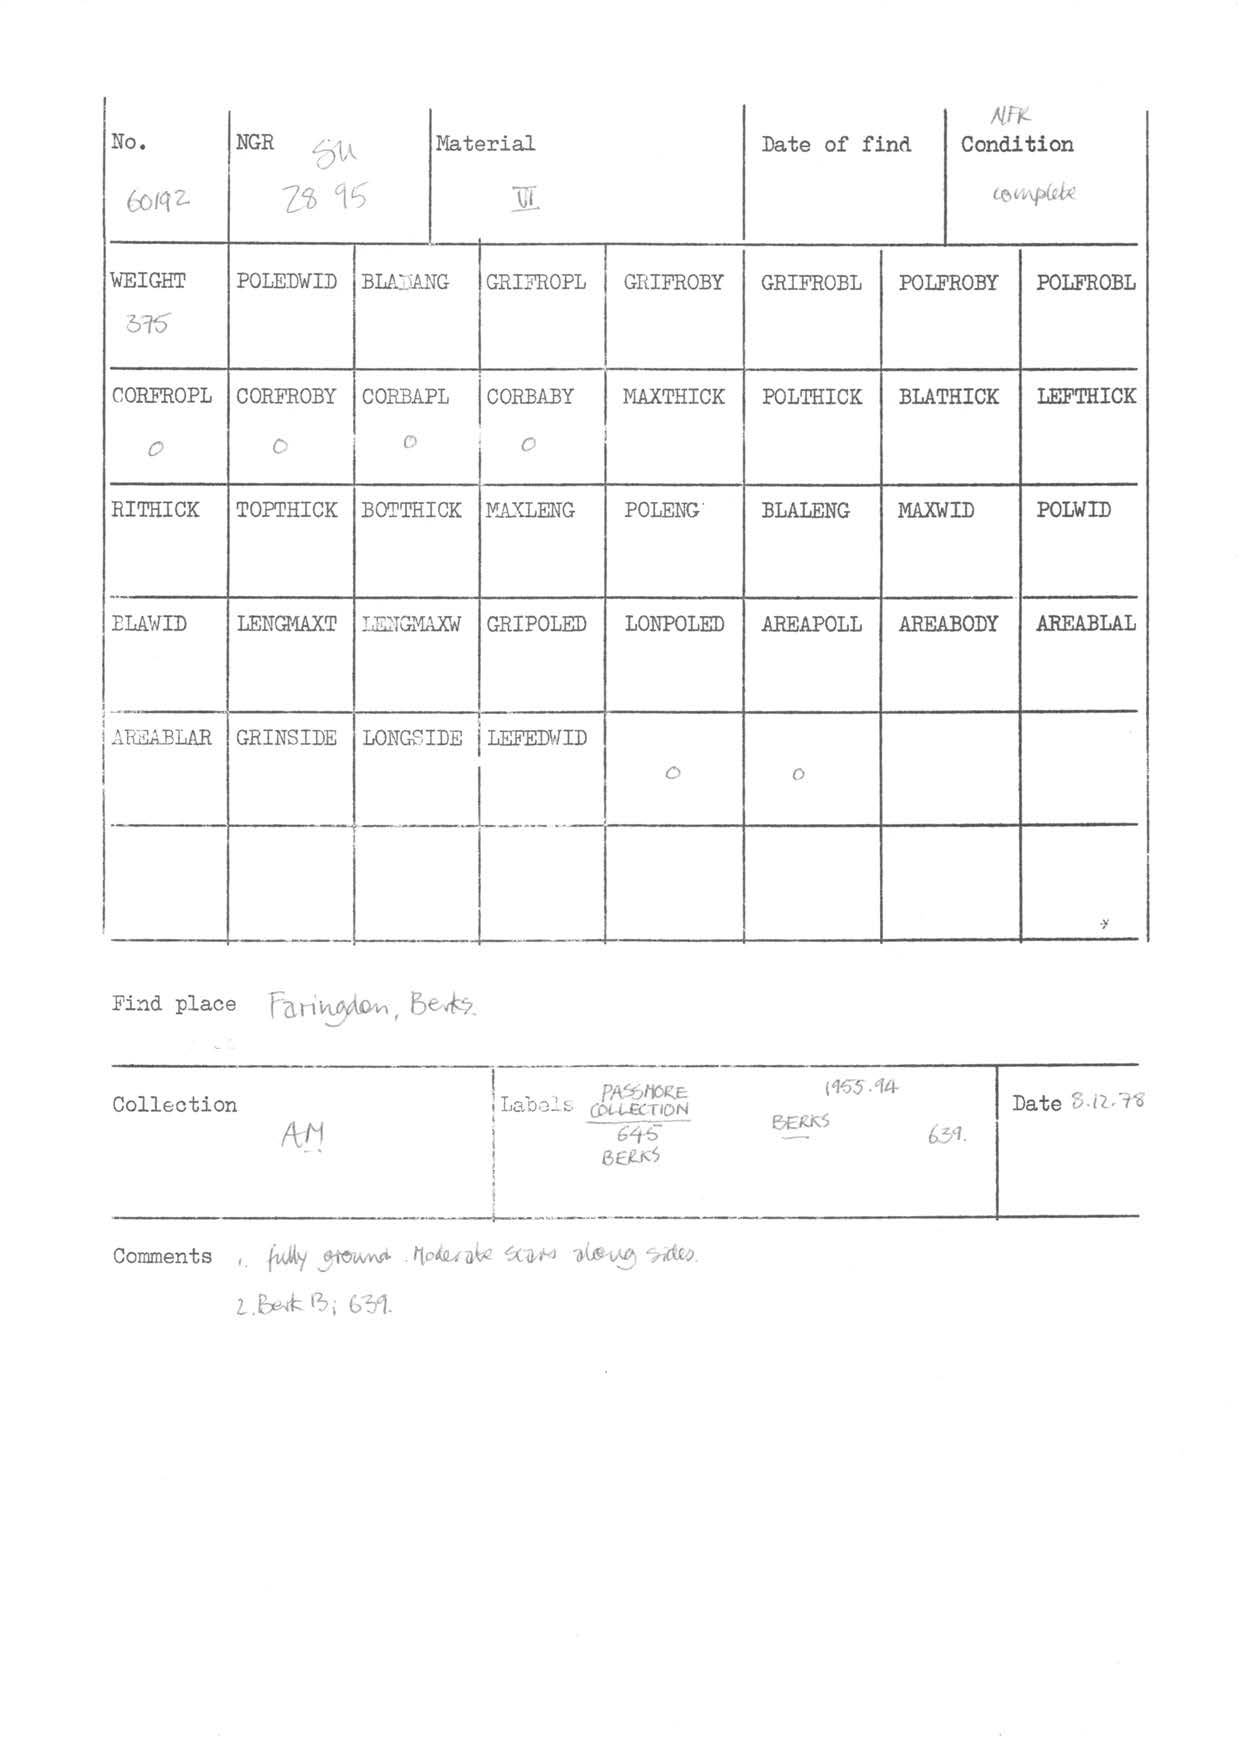 NFK
No. NGR SU Material Date of find Condition
60192 28 95 VI complete
WEIGHT POLEDWID BLADANG GRIFROPL GRIFROBY GRIFROBL POLFROBY POLFROBL
375
CORFROPL CORFROBY CORBAPL CORBABY MAXTHICK POLTHICK BLATHICK LEFTTHICK
0 0 0 0
RITHICK TOPTHICK BOTTHICK MAXLENG POLENG BLALENG MAXWID POLWID
BLAWID LENGMAXT LENGMAXW GRIPOLED LONPOLED AREAPOLL AREABODY AREABLAL
AREABLAR GRINSIDE LONGSIDE LEFEDWID
0 0
Find place Faringdon, Berks.
Collection AM
Labels PASSMORE COLLECTION
645
BERKS
1955.94
BERKS
639.
Date 8.12.78
Comments 1. fully ground. Moderate scars along sides.
2. Berk B; 639.